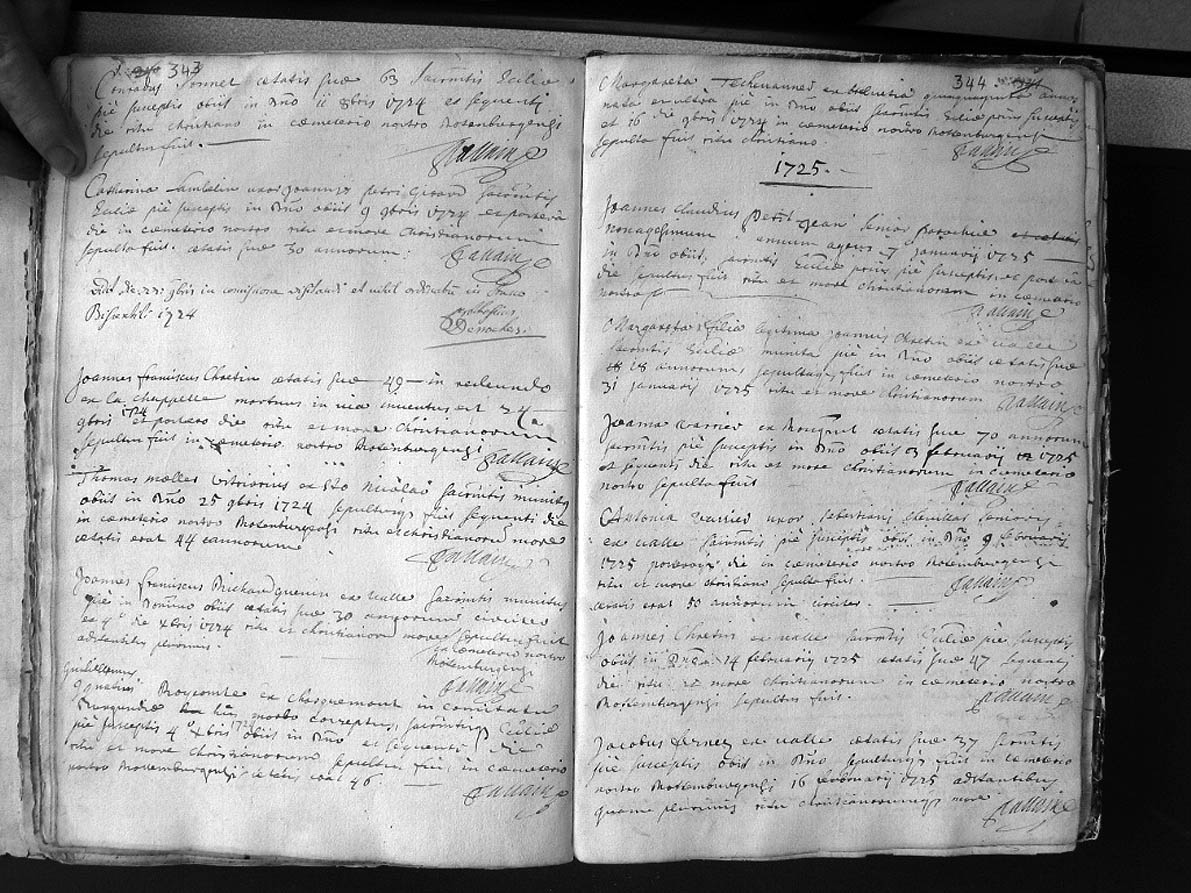 343
Conradus Sonnet ætatis suæ 63 Sacrmtis Ecliæ
piè susceptis obiit in Dño 11 8bris 1724 et sequenti
die ritu christiano in cæmeterio nostro Rotenburgensi
sepultus fuit.
Pallain
Catharina Lambelin uxor Joannis petri Girard sacrmtis
Ecliæ piè susceptis in Dño obiit 9 9bris 1724 et posterâ
die in cæmeterio nostro ritu et more christianorum
sepulta fuit. ætatis suæ 30 annorum.
Pallain
9bris in comissione visitandi et nihil
1724
Joannes franciscus Chretin ætatis suæ 49 in redeundo
ex la chappelle mortuus in via inventus est 24
9bris 1724 et postero die ritu et more christianorum
sepultus fuit in cæmeterio nostro Rotemburgensi
Pallain
Thomas mælles vitriarius ex Sto Nicolao sacrmtis munitus
obiit in Dño 25 9bris 1724 sepultus fuit sequenti die
in cæmeterio nostro Rotemburgensi ritu et christianorum more
ætatis erat 44 annorum
Pallain
Joannes franciscus Richard ex valle sacrmtis munitus
piè in Domino obiit ætatis suæ 30 annorum circiter
et 4a die xbris 1724 ritu et christianorum more sepultus fuit
adstantibus plurimis.
in cæmeterio nostro
Rotemburgensi
Pallain
Guilielmus
Ignatius ex in comitatu
Burgundiæ hic morbo correptus, sacrmtis Ecliæ
piè susceptis 4a xbris 1724 obiit in Dño et sequenti die
ritu et more christianorum sepultus fuit in cæmeterio
nostro Rotemburgensi ætatis erat 46.
Pallain
344
Margareta ex helvetia quinquaginta annos
nata et ultra piè in Dño obiit sacrmtis Ecliæ prius susceptis
et 16 die 9bris 1724 in cæmeterio nostro Rotemburgensi
sepulta fuit ritu christiano.
Pallain
1725.
Joannes Claudius petit jean senior parochiæ
nonagesimum annum agens 7 januarii 1725
in Dño obiit, sacrmtis Ecliæ prius piè susceptis, et posterâ
die sepultus fuit ritu et more christianorum in cæmeterio
nostro
Pallain
Margareta filia legitima joannis Chretin ex valle
sacrmtis Ecliæ munita piè in Dño obiit ætatis suæ
18 annorum, sepultaque fuit in cæmeterio nostro
31 januarii 1725 ritu et more christianorum
Pallain
Joanna ex ætatis suæ 70 annorum
sacrmtis piè susceptis in Dño obiit 3 februarii 1725
et sequenti die ritu et more christianorum in cæmeterio
nostro sepulta fuit
Pallain
Antonia uxor senioris
ex valle sacrmtis piè susceptis obiit in Dño 9 februarii
1725 posteroque die in cæmeterio nostro Rotemburgensi
ritu et more christiano sepulta fuit
ætatis erat 50 annorum circiter.
Pallain
Joannes Chretin ex valle sacrmtis Ecliæ piè susceptis
obiit in Dño 14 februarii 1725 ætatis suæ 47 sequenti
die ritu et more christianorum in cæmeterio nostro
Rotemburgensi sepultus fuit.
Pallain
Jacobus ex valle ætatis suæ 37 sacrmtis
piè susceptis obiit in Dño, sepultusque fuit in cæmeterio
nostro Rotemburgensi 16 februarii 1725 adstantibus
quam plurimis ritu christianorumque more
Pallain